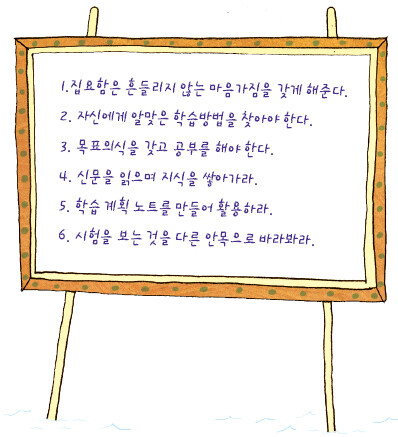 1. 집요함은 흔들리지 않는 마음가짐을 갖게 해준다.
2. 자신에게 알맞은 학습방법을 찾아야 한다.
3. 목표의식을 갖고 공부를 해야 한다.
4. 신문을 읽으며 지식을 쌓아가라.
5. 학습 계획 노트를 만들어 활용하라.
6. 시험을 보는 것을 다른 안목으로 바라봐라.